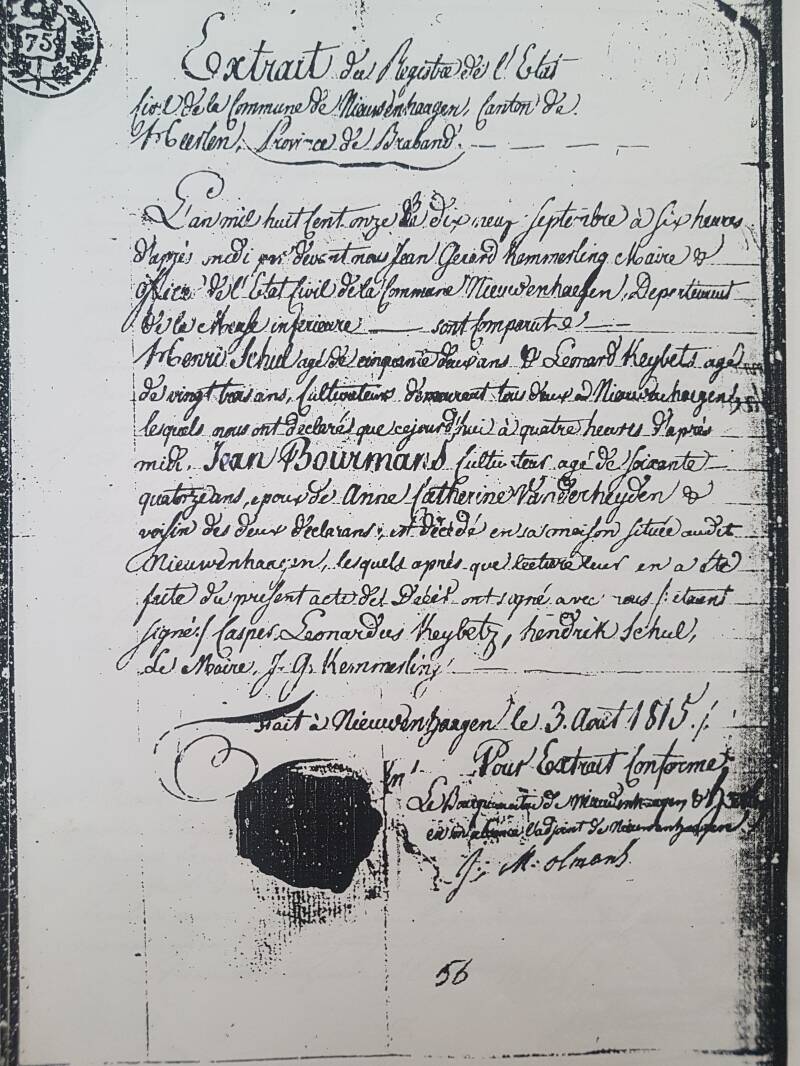 75
Extrait du Registre de l'Etat
Civil de la Commune de Nieuwenhaagen, Canton de
Heerlen, Province de Braband.
L'an mil huit cent onze le dix neuf Septembre à six heures
d'après midi par devant nous Jean Gerard Kemmerling Maire &
officier de l'Etat Civil de la Commune Nieuwenhaegen, Departement
de la Meuse inferieure sont Comparut
Henri Schul agé de cinquante deux ans & Leonard Keybets agé
de vingt trois ans, Cultivateurs demeurant tous deux à Nieuwenhaegen,
lesquels nous ont declarés que cejourd'hui à quatre heures d'après
midi, Jean Bourmans Cultivateur agé de Soixante
quatorze ans, epoux de Anne Catherine Vanderheyden &
voisin des deux declarans, est décédé en sa maison située audit
Nieuwenhaagen, lesquels après que lecture leur en a été
faite du présent acte de Décès ont signé avec nous /: etaent
signé :/ Casper Leonardus Keybetz, hendrik Schul,
Le Maire, J. G. Kemmerling
Fait à Nieuwenhaagen le 3. Août 1815 ./.
Pour Extrait Conforme
Le Bourguemaitre de Nieuwenhaagen &
en son absence l'adjoint de Nieuwenhaagen
J. M. olmans
56